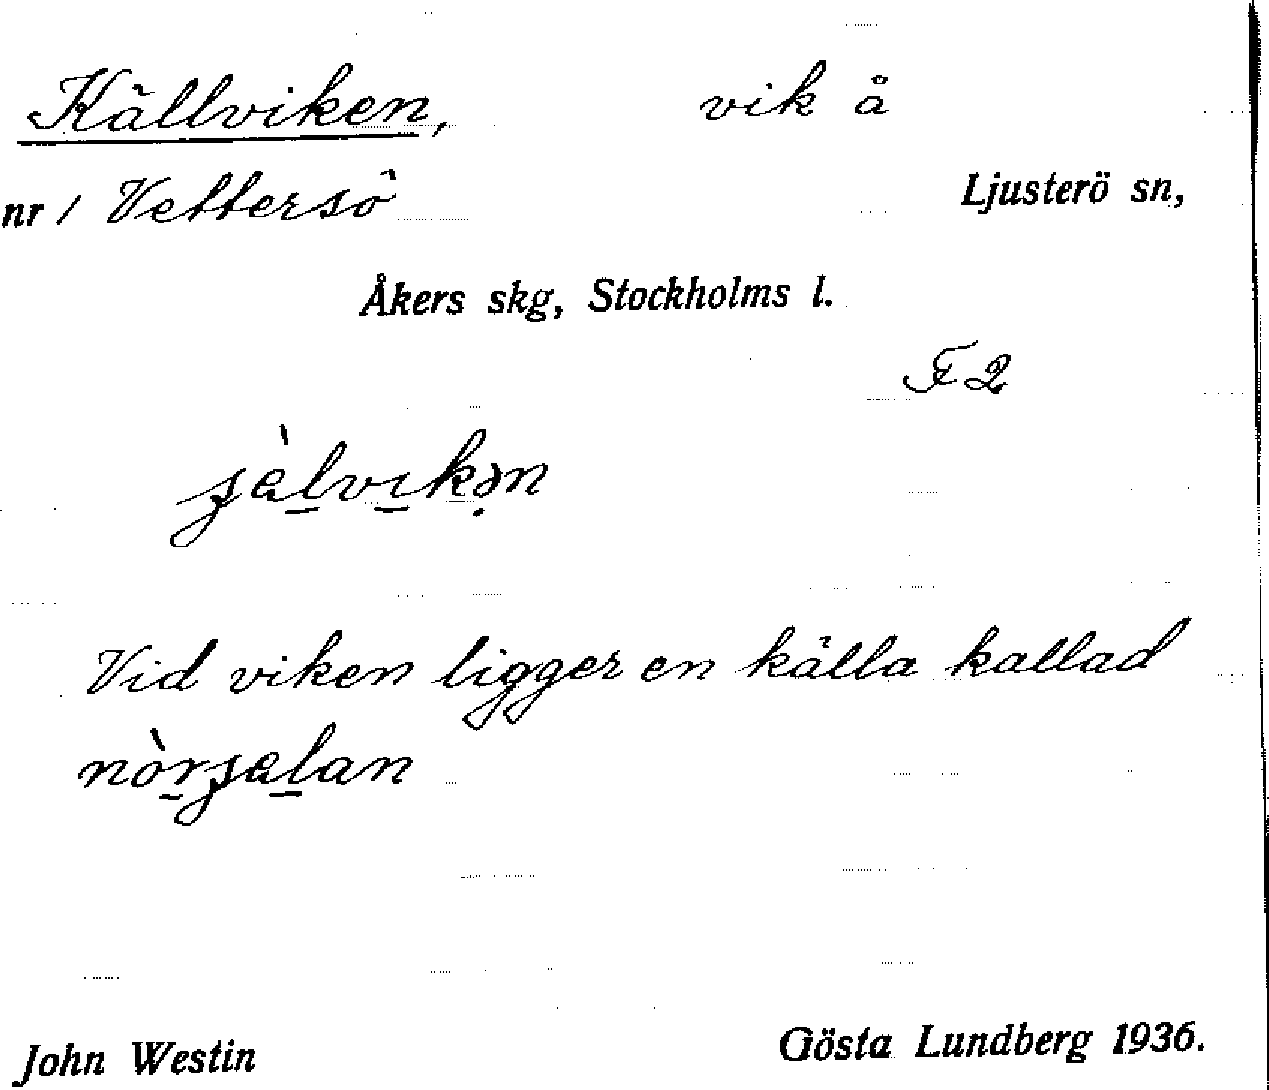 Källviken, vik å
nr 1 Vettersö Ljusterö sn,
Åkers skg, Stockholms l.
F2
Vid viken ligger en källa kallad
John Westin Gösta Lundberg 1936.